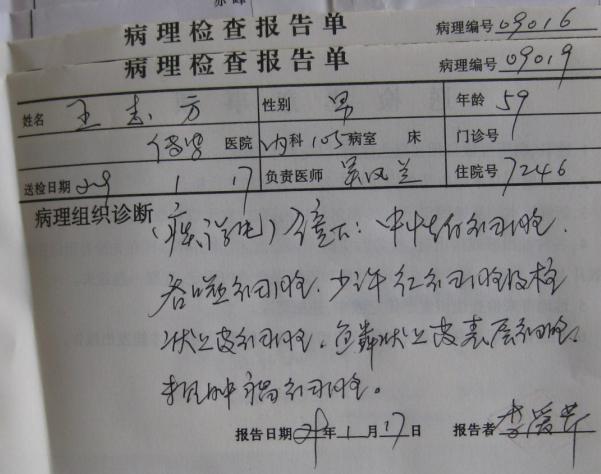 病理检查报告单 病理编号 09016
病理检查报告单 病理编号 09019
姓名 王志方 性别 男 年龄 59
医院 内科 105 病室 床 门诊号
送检日期 09 1 17 负责医师 吴汉兰 住院号 7246
病理组织诊断 (痰、涂片) 镜下：中性粒细胞、
吞噬细胞、少许红细胞及柱
状上皮细胞、鱼鳞状上皮表层细胞。
报告日期 09 年 1 月 17 日 报告者 李爱华